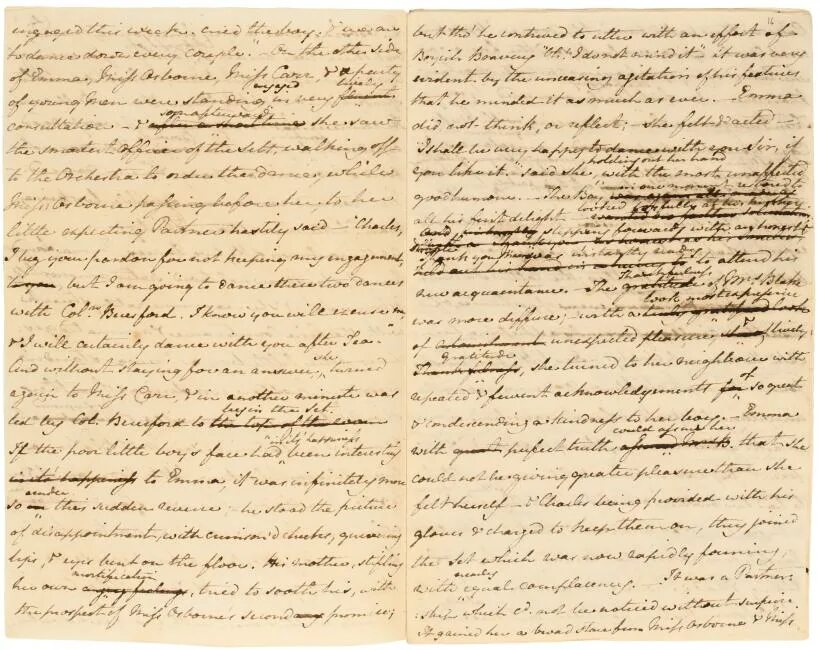 engaged this week. cried the boy. & we are
to dance down every couple." – On the other side
of Emma, Miss Osborne, Miss Carr, & a party
of young Men were standing engaged in very lively
consultation – & soon afterwards she saw
the smartest officer of the Sett, walking off
to the Orchestra to order the dance, while
Miss Osborne passing before her, to her
little expecting Partner hastily said – "Charles,
I beg your pardon for not keeping my engagement,
but I am going to dance these two dances
with Coln Beresford. I know you will excuse me,
& I will certainly dance with you after Tea.
And without staying for an answer, she turned
again to Miss Carr, & in another minute was
led by Col. Beresford to begin the Set.
If the poor little boy's face had in its happiness been interesting
to Emma, it was infinitely more
so under this sudden reverse; – he stood the picture
of disappointment, with crimson'd cheeks, quivering
lips, & eyes bent on the floor. His mother, stifling
her own mortification, tried to sooth his, with
the prospect of Miss Osborne's second promise;
but tho' he contrived to utter with an effort of
Boyish Bravery "Oh! I do not mind it" – it was very
evident by the unceasing agitation of his features
that he minded it as much as ever. – Emma
did not think, or reflect; – she felt & acted –.
"I shall be very happy to dance with you Sir, if
you like it." said she, holding out her hand with the most unaffected
goodhumour. – The Boy in one moment restored to
all his first delight – looked joyfully at his Mother
stepping forwards with an honest &
simple Thank you Maam was instantly ready to attend his
new acquaintance. – The Thankfulness of Mrs Blake
was more diffuse; – with a look, most expressive
of unexpected pleasure, & lively
gratitude, she turned to her neighbour with
repeated & fervent acknowledgements of so great
& condescending a kindness to her boy. – Emma
with perfect truth could assure her that she
could not be giving greater pleasure than she
felt herself – & Charles being provided with his
gloves & charged to keep them on, they joined
the Set which was now rapidly forming,
with nearly equal complacency. – It was a Partner:
:ship which cd. not be noticed without surprise.
It gained her a broad stare from Miss Osborne & Miss
16